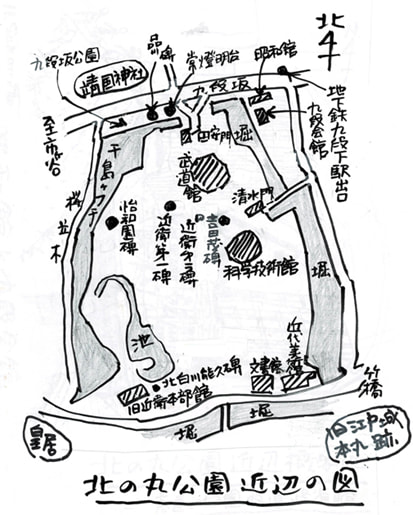 北
品川碑
常燈明台
昭和館
九段坂公園
靖国神社
九段坂
地下鉄九段下駅出口
九段会館
至市ヶ谷
田安門
堀
千鳥ヶ淵
武道館
清水門
桜並木
怡和園碑
近衛第一碑
近衛第二碑
吉田茂碑
科学技術館
堀
池
北白川能久碑
旧近衛本部館
文書館
近代美術館
竹橋
皇居
堀
堀
旧江戸城
本丸跡
北の丸公園近辺の図